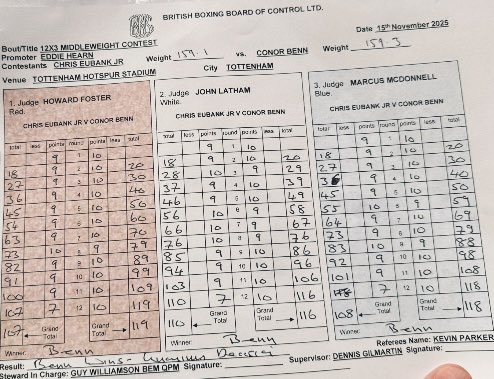 BRITISH BOXING BOARD OF CONTROL LTD.
Date 15th November 2025
Bout/Title 12X3 MIDDLEWEIGHT CONTEST
Promoter EDDIE HEARN
Contestants CHRIS EUBANK JR Weight 159.1 vs. CONOR BENN Weight 159.3
Venue TOTTENHAM HOTSPUR STADIUM City TOTTENHAM
1. Judge HOWARD FOSTER
Red.
CHRIS EUBANK JR V CONOR BENN
total less points round points less total
9 1 10
18 9 2 10 20
27 9 3 10 30
36 9 4 10 40
45 9 5 10 50
54 9 6 10 60
63 9 7 10 70
73 10 8 9 79
82 9 9 10 89
91 9 10 10 99
100 9 11 10 109
107 7 12 10 119
107 Grand Total Grand Total 119
Winner: Benn
2. Judge JOHN LATHAM
White.
CHRIS EUBANK JR V CONOR BENN
total less points round points less total
9 1 10
18 9 2 10 20
28 10 3 9 29
37 9 4 10 39
46 9 5 10 49
56 10 6 9 58
66 10 7 9 67
76 10 8 9 76
85 9 9 10 86
94 9 10 10 96
103 9 11 10 106
110 7 12 10 116
110 Grand Total Grand Total 116
Winner: Benn
3. Judge MARCUS MCDONNELL
Blue.
CHRIS EUBANK JR V CONOR BENN
total less points round points less total
9 1 10
18 9 2 10 20
27 9 3 10 30
36 9 4 10 40
45 9 5 10 50
55 10 6 9 59
64 9 7 10 69
73 9 8 10 79
83 10 9 9 88
92 9 10 10 98
101 9 11 10 108
7 12 10 118
108 Grand Total Grand Total 118
Winner: Benn
Result: Benn Wins - Unanimous Decision
Referees Name: KEVIN PARKER
Steward In Charge: GUY WILLIAMSON BEM QPM Signature:
Supervisor: DENNIS GILMARTIN Signature: